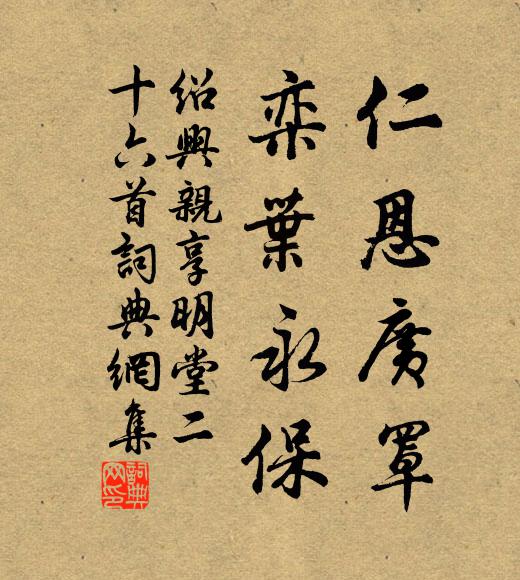 仁恩廣覃
奕葉永保
紹興親享明堂二
十六首詞典網集
詞典網印